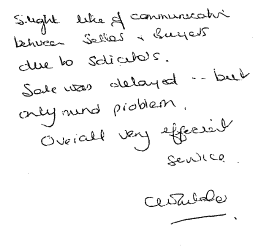 Slight like of communication
between Sellers + Buyers
due to Solicitors.
Sale was delayed -- but
only mind problem.
Overall very efficient
service.